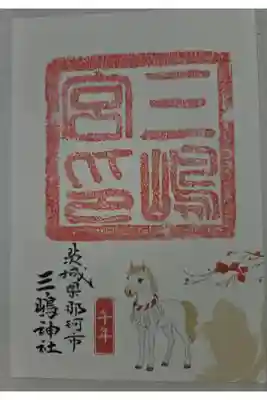 三嶋
宮印
午年
茨城県那珂市
三嶋神社